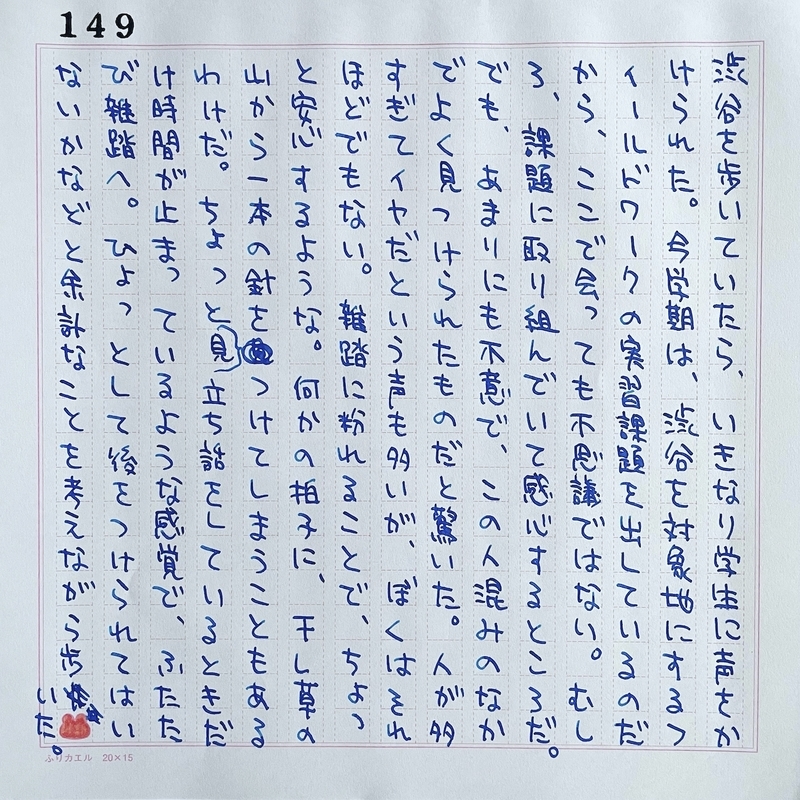 149
渋谷を歩いていたら、いきなり学生に声をか
けられた。今学期は、渋谷を対象地にするフ
ィールドワークの実習課題を出しているのだ
から、ここで会っても不思議ではない。むし
ろ、課題に取り組んでいて感心するところだ。
でも、あまりにも不意で、この人混みのなか
でよく見つけられたものだと驚いた。人が多
すぎてイヤだという声も多いが、ぼくはそれ
ほどでもない。雑踏に紛れることで、ちょっ
と安心するような。何かの拍子に、干し草の
山から一本の針を見つけてしまうこともある
わけだ。ちょっと立ち話をしているときだ
け時間が止まっているような感覚で、ふたた
び雑踏へ。ひょっとして後をつけられてはい
ないかなどと余計なことを考えながら歩
いた。
ふリカエル 20×15